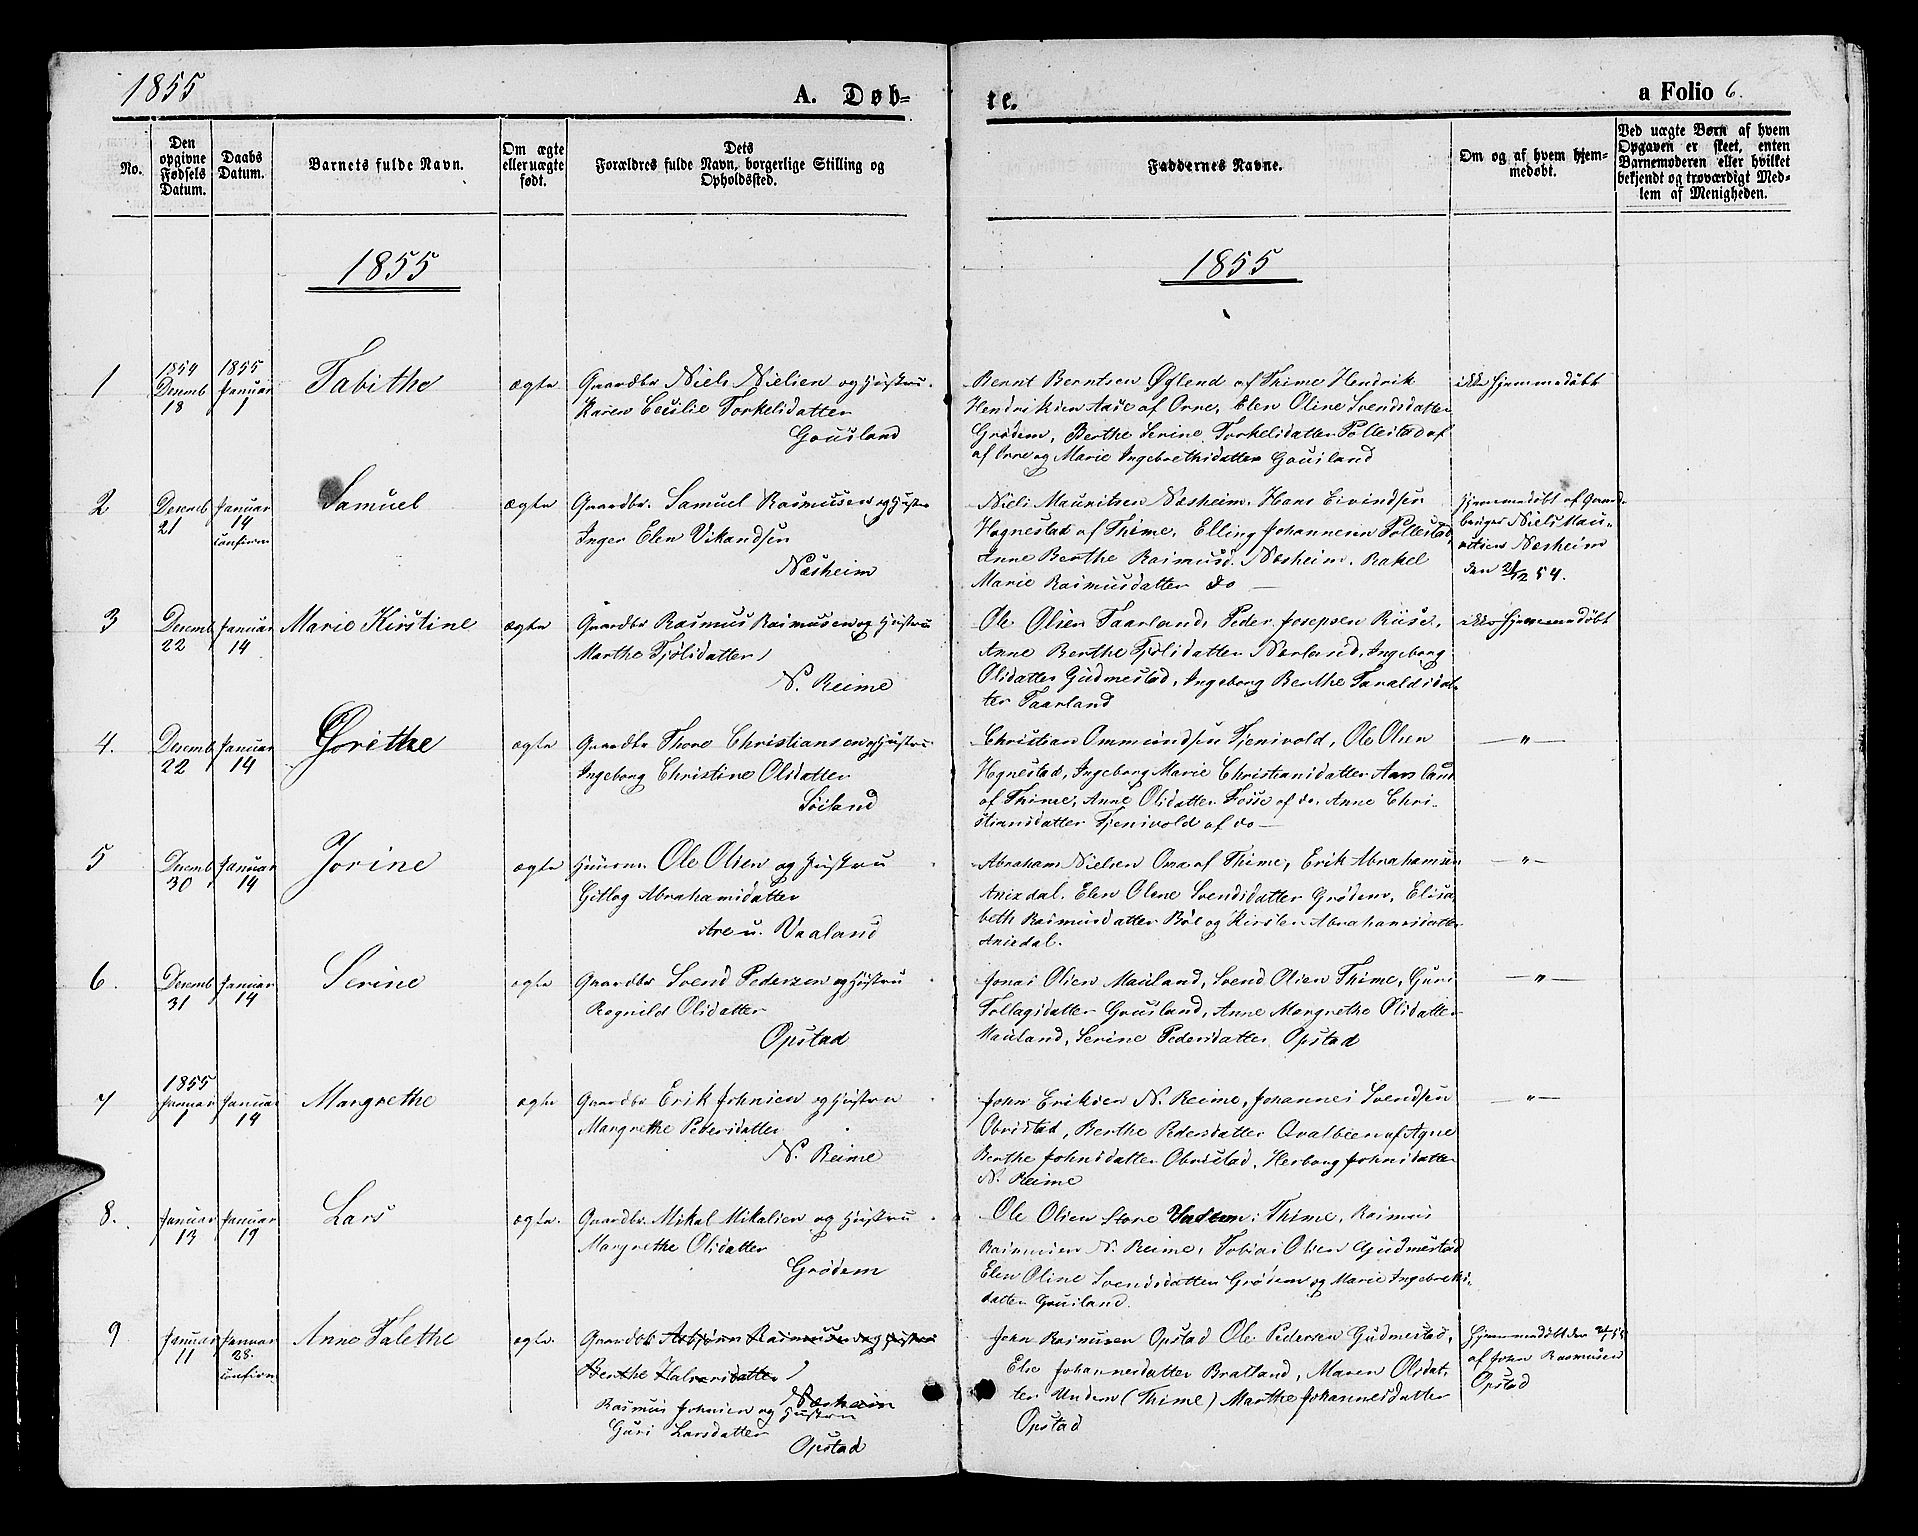 1855
A. Døb-
te.
a Folio 6.
No.
Den opgivne Fødsels Datum.
Daabs Datum.
Barnets fulde Navn.
Om ægte eller uægte født.
Dets Forældres fulde Navn, borgerlige Stilling og Opholdssted.
Faddernes Navne.
Om og af hvem hjemmedøbt.
Ved uægte Børn af hvem Opgaven er skeet, enten Barnemoderen eller hvilket bekjendt og troværdigt Medlem af Menigheden.
1855
1855
1
1854 Desemb 18
1855 Januar 1
Tabithe
ægte
Gaardbr Niels Nielsen og Hustru
Karen Cecilie Torkelsdatter
Gausland
Bernt Berntsen Øslend af Thime Hendrik
Hendriksen Aase af Orre, Elen Oline Svendsdatter
Grødem, Berthe Serine Torkelsdatter Pollestad af
af Orre og Marie Ingebrethsdatter Gausland
ikke hjemmedøbt
2
Desemb 21
Januar 14 confirm
Samuel
ægte
Gaardbr. Samuel Rasmusen og Hustru
Inger Elen Vikandsen
Næsheim
Niels Mauritsen Næsheim, Hans Eivindsen
Hognestad af Thime, Elling Johannesen Pollestad,
Anne Berthe Rasmusd. Næsheim, Rakel
Marie Rasmusdatter do —
hjemmedøbt af Gaard-
bruger Niels Mau-
ritsen Næsheim
den 21/12 54.
3
Desemb 22
Januar 14
Marie Kirstine
ægte
Gaardbr Rasmus Rasmusen og Hustru
Marthe Tjølsdatter
N. Reime
Ole Olsen Taarland, Peder Josepsen Riise,
Anne Berthe Tjølsdatter Nærland, Ingeborg
Olsdatter Gudmestad, Ingeborg Berthe Taraldsdat-
ter Taarland
ikke hjemmedøbt
4.
Desemb 22
Januar 14
Gorithe
ægte
Gaardbr Thore Christiansen og Hustru
Ingeborg Christine Olsdatter
Søiland
Christian Ommundsen Tjensvold, Ole Olsen
Hognestad, Ingeborg Marie Christiansdatter Aarsland
af Thime, Anne Olsdatter Fosse af do, Anne Chri-
stiansdatter Tjensvold af do —
— " —
5
Desemb 30
Januar 14
Jorine
ægte
Huusm. Ole Olsen og Hustru
Gitlog Abrahamsdatter
Are u. Vaaland
Abraham Nielsen Oma af Thime, Erik Abrahamsen
Anisdal, Elen Oline Svendsdatter Grødem, Elisa-
beth Rasmusdatter Bøe og Kirsten Abrahamsdatter
Anisdal.
— " —
6.
Desemb 31
Januar 14
Serine
ægte
Gaardbr Svend Pedersen og Hustru
Ragnild Olsdatter
Opstad
Jonas Olsen Mauland, Svend Olsen Thime, Guri
Tollagsdatter Gausland, Anne Margrethe Olsdatter
Mauland, Serine Pedersdatter Opstad
— " —
7
1855 Januar 1
Januar 14
Margrethe
ægte
Gaardbr Erik Johnsen og Hustru
Margrethe Pedersdatter
N. Reime
John Eriksen N. Reime, Johannes Svendsen
Obrestad, Berthe Pedersdatter Qvalbeen af Ogne
Berthe Johnsdatter Obrestad, Herborg Johnsdatter
N. Reime
— " —
8.
Januar 13
Januar 19
Lars
ægte.
Gaardbr. Mikal Mikalsen og Hustru
Margrethe Olsdatter
Grødem
Ole Olsen Store Undem, Thime, Rasmus
Rasmusen N. Reime, Tobias Olsen Gudmestad
Elen Oline Svendsdatter Grødem og Marie Ingebreths-
datter Gausland.
9
Januar 11
Januar 28. confirm
Anne Talethe
ægte.
Gaardbr Asbjørn Rasmussen og Hustru
Berthe Halvorsdatter
Næsheim
Rasmus Johnsen og Hustru
Guri Larsdatter
Opstad
John Rasmusen Opstad Ole Pedersen Gudmestad,
Else Johannesdatter Bratland, Maren Olsdat-
ter Undem (Thime) Marthe Johannesdatter
Opstad
hjemmedøbt den 21/1 55
af John Rasmusen
Opstad